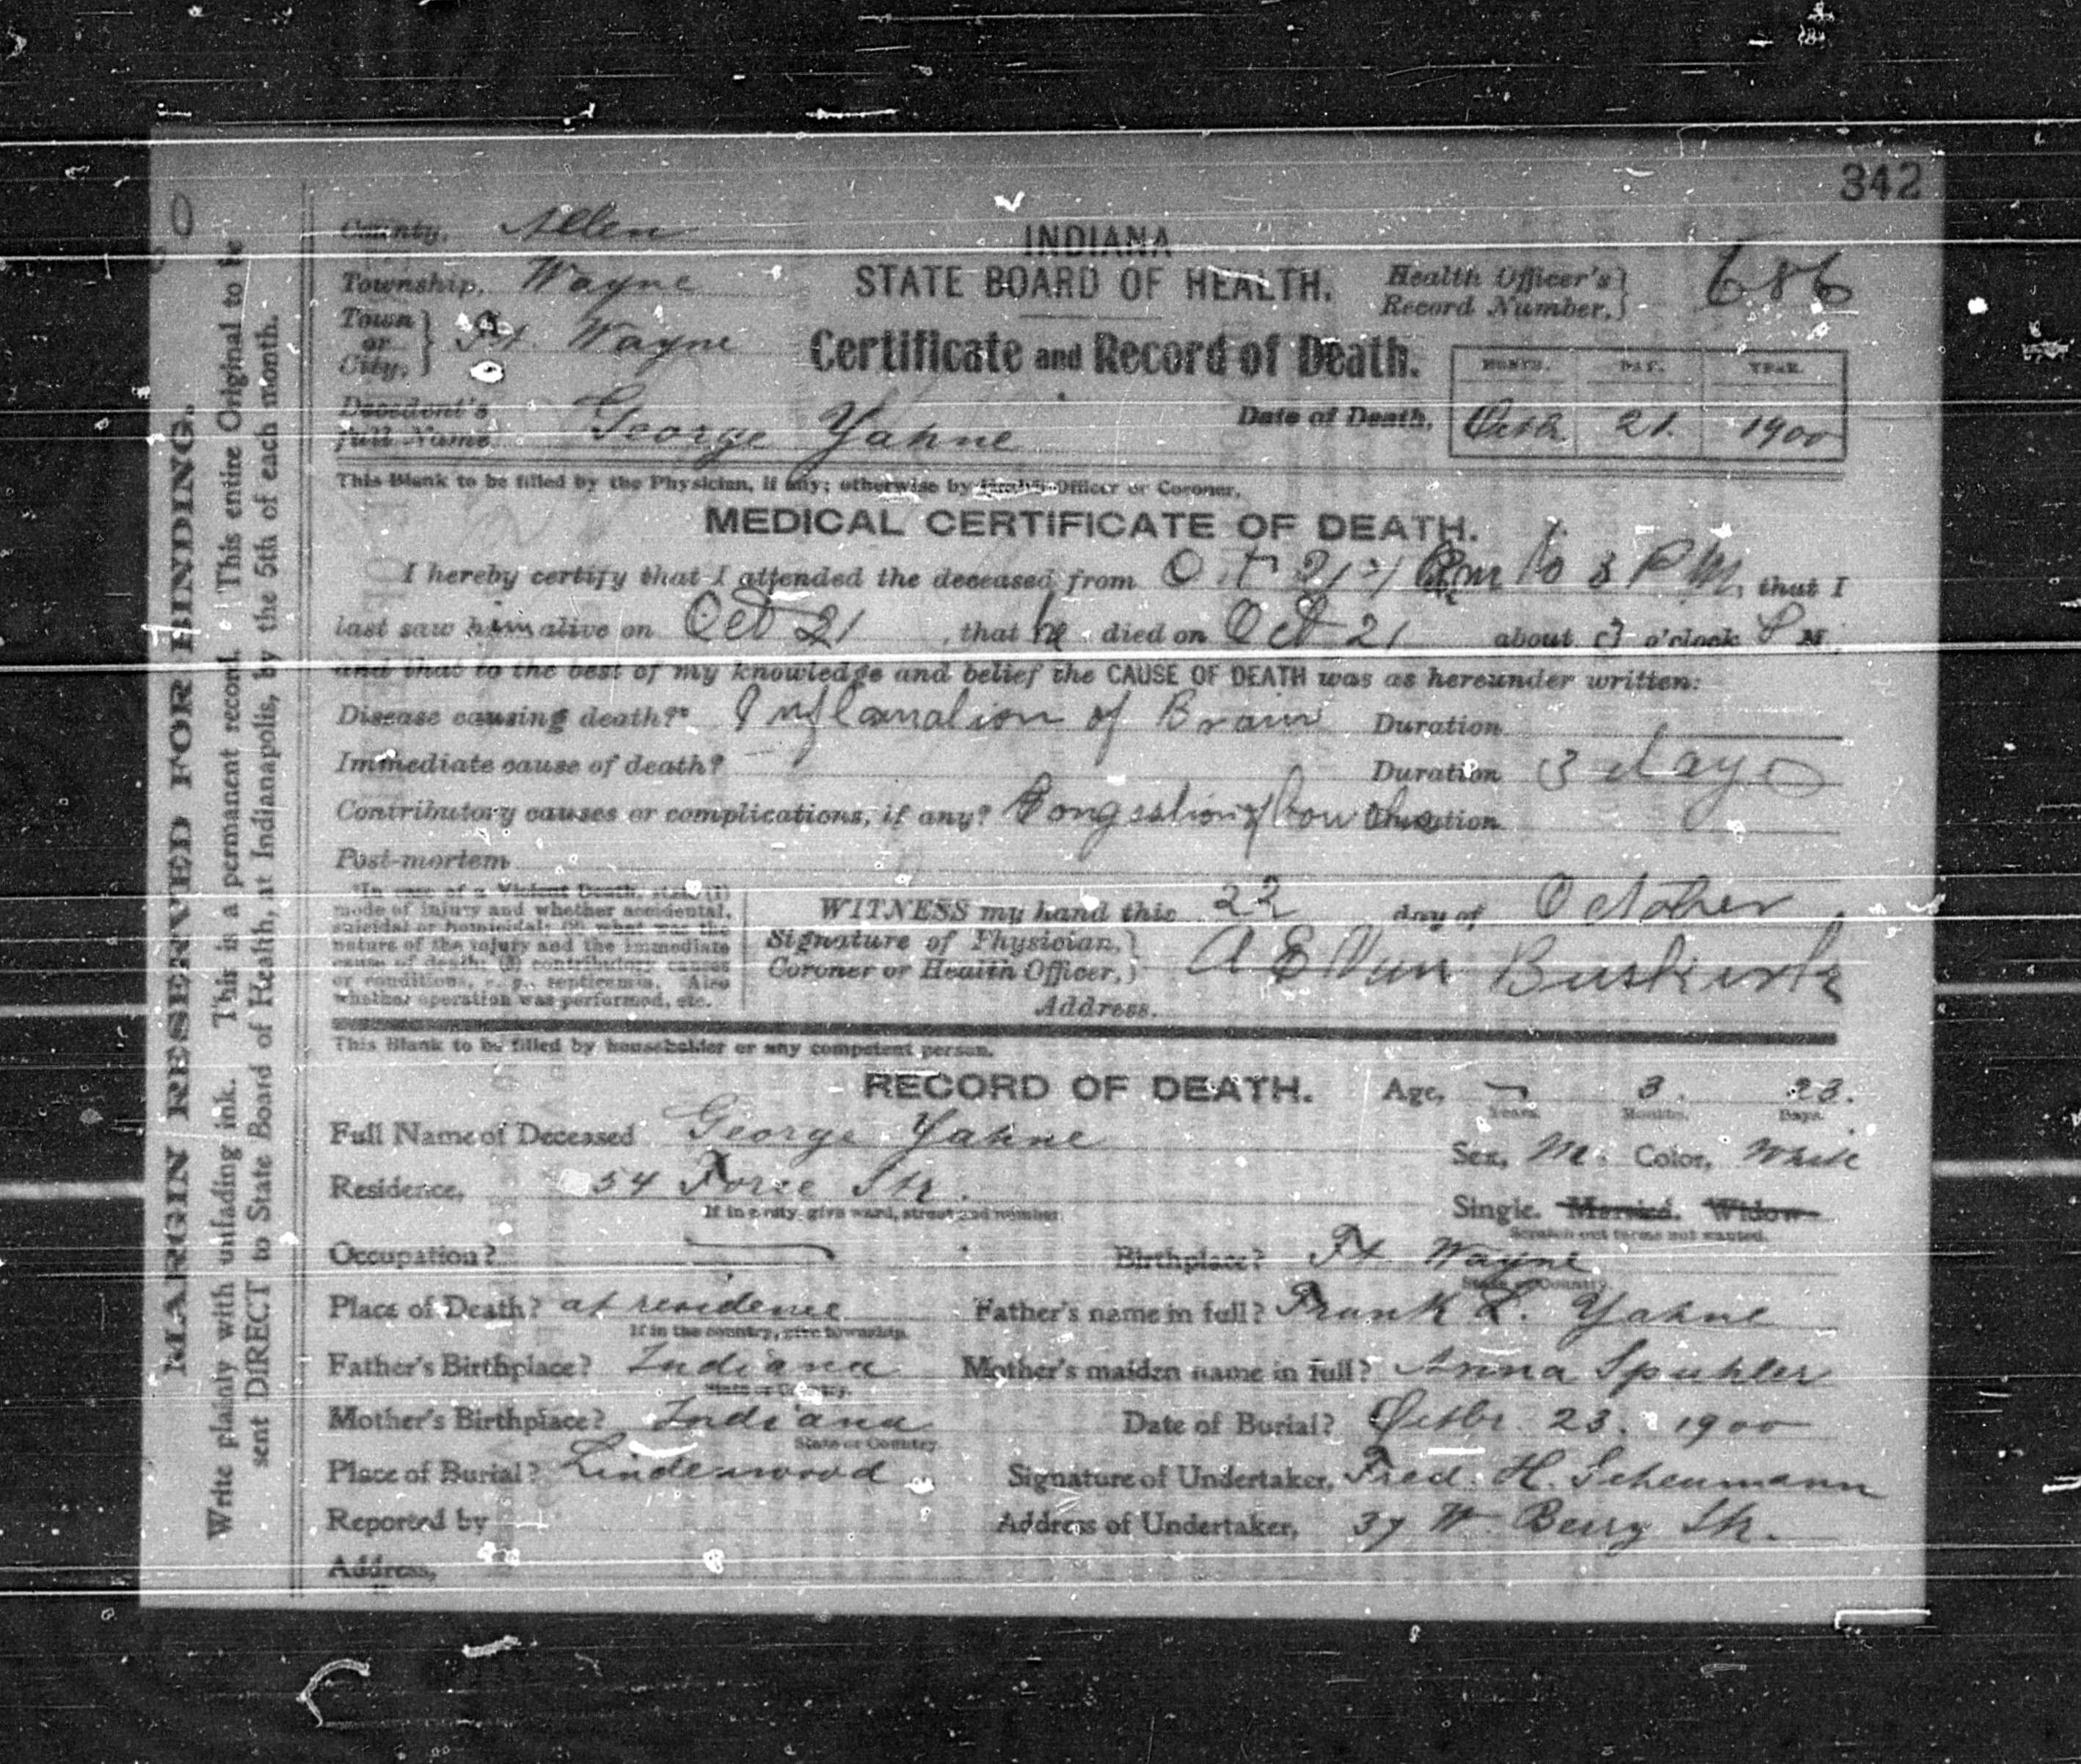 342
County, Allen
INDIANA
Township, Wayne
STATE BOARD OF HEALTH.
Health Officer's Record Number, 686
Town or City, Ft. Wayne
Certificate and Record of Death.
MONTH. DAY. YEAR.
Decedent's full Name George Yahne
Date of Death, Octbr. 21. 1900
This Blank to be filled by the Physician, if any; otherwise by Health Officer or Coroner.
MEDICAL CERTIFICATE OF DEATH.
I hereby certify that I attended the deceased from Oct 21 to 3 PM, that I
last saw him alive on Oct 21, that he died on Oct 21 about 3 o'clock P M.,
and that to the best of my knowledge and belief the CAUSE OF DEATH was as hereunder written:
Disease causing death?* Inflamation of Brain Duration
Immediate cause of death? Duration 3 days
Contributory causes or complications, if any? Congestion of Duration
Post-mortem
*In case of a Violent Death, state (1)
mode of injury and whether accidental,
suicidal or homicidal; (2) what was the
nature of the injury and the immediate
cause of death; (3) contributory causes
or conditions, e. g., septicemia. Also
whether operation was performed, etc.
WITNESS my hand this 22 day of October
Signature of Physician, Coroner or Health Officer, A E Van Buskirk
Address.
This Blank to be filled by householder or any competent person.
RECORD OF DEATH. Age, — Years. 3. Months. 23. Days.
Full Name of Deceased George Yahne
Sex, M. Color, White
Residence, 54 Force Str.
If in a city, give ward, street and number.
Single. Married. Widow
Scratch out terms not wanted.
Occupation? —
Birthplace? Ft. Wayne
State or Country.
Place of Death? at residence
If in the country, give township.
Father's name in full? Frank L. Yahne
Father's Birthplace? Indiana
State or Country.
Mother's maiden name in full? Anna Spuhler
Mother's Birthplace? Indiana
State or Country.
Date of Burial? Octbr. 23. 1900
Place of Burial? Lindenwood
Signature of Undertaker, Fred. H. Scheumann
Reported by
Address of Undertaker, 37 W. Berry Str.
Address,
MARGIN RESERVED FOR BINDING.
Write plainly with unfading ink. This is a permanent record. This entire Original to be
sent DIRECT to State Board of Health, at Indianapolis, by the 5th of each month.